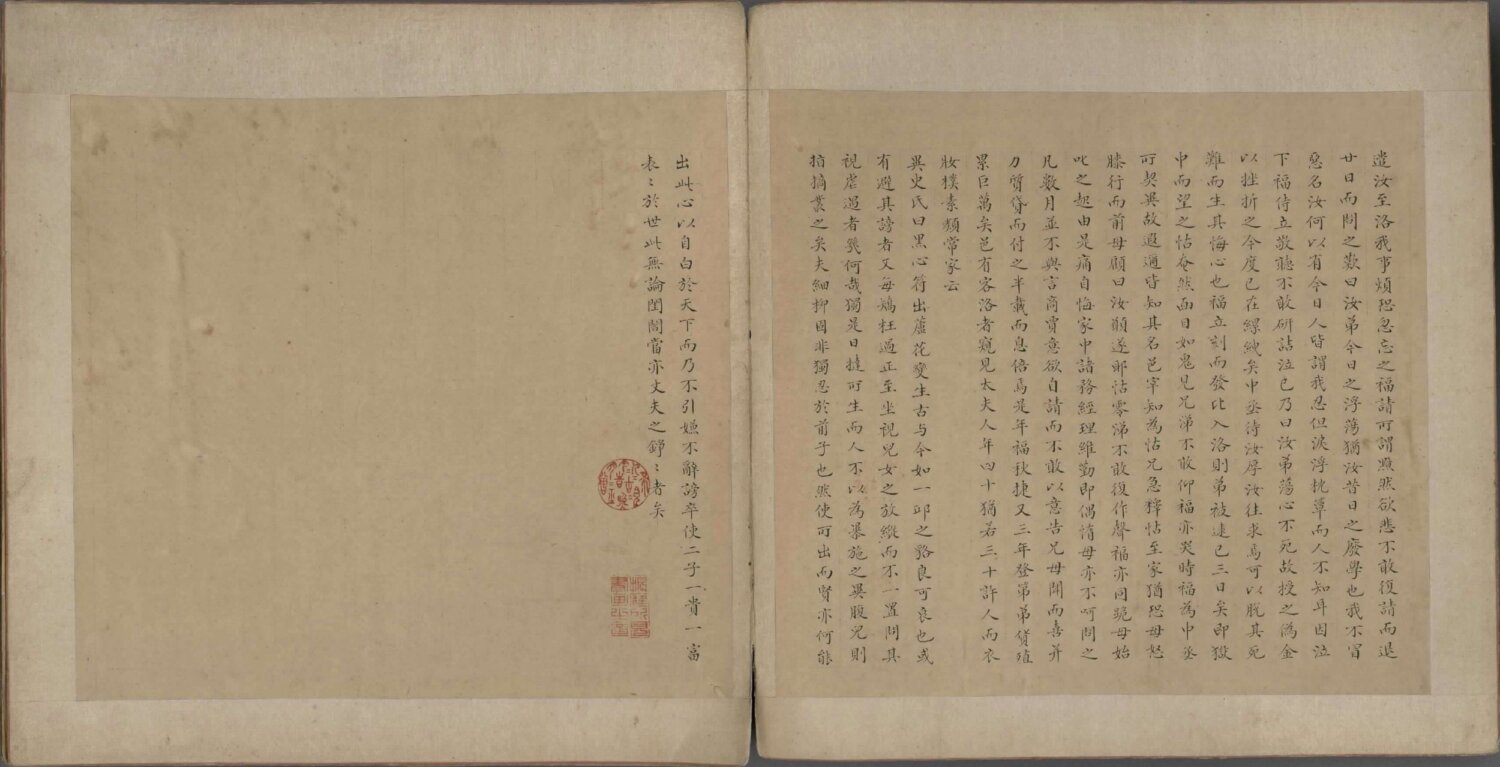 遣汝至洛我事煩恐忽忘之福請可謂黯然欲悲不敢復請而退
廿日而問之歎曰汝弟今日之浮蕩猶汝昔日之廢學也我不冒
惡名汝何以有今日人皆謂我忍但淚浮枕簟而人不知耳因泣
下福侍立敬聽不敢研詰泣已乃曰汝弟蕩心不死故授之偽金
以挫折之今度已在縲絏矣中丞待汝厚汝往求焉可以脫其死
難而生其悔心也福立刻而發比入洛則弟被逮已三日矣即獄
中而望之怙奄然面目如鬼見兄涕不敢仰福亦哭時福為中丞
可契異故遐邇皆知其名邑宰知為怙兄急釋怙至家猶恐母怒
膝行而前母顧曰汝願遂耶怙零涕不敢復作聲福亦同跪母始
叱之起由是痛自悔家中諸務經理維勤即偶惰母亦不呵問之
凡數月並不與言商賈意欲自請而不敢以意告兄母聞而喜并
力質貸而付之半載而息倍焉是年福秋捷又三年登第弟貨殖
累巨萬矣邑有客洛者窺見太夫人年四十猶若三十許人而衣
妝樸素類常家云
異史氏曰黑心符出蘆花變生古与今如一邱之貉良可哀也或
有避其謗者又每矯枉過正至坐視兒女之放縱而不一置問其
視虐遇者幾何哉獨是日撻所生而人不以為暴施之異腹兒則
指摘叢之矣夫細柳固非獨忍於前子也然使所出而賢亦何能
出此心以自白於天下而乃不引嫌不辭謗卒使二子一貴一富
表〻於世此無論閨闥當亦丈夫之錚〻者矣